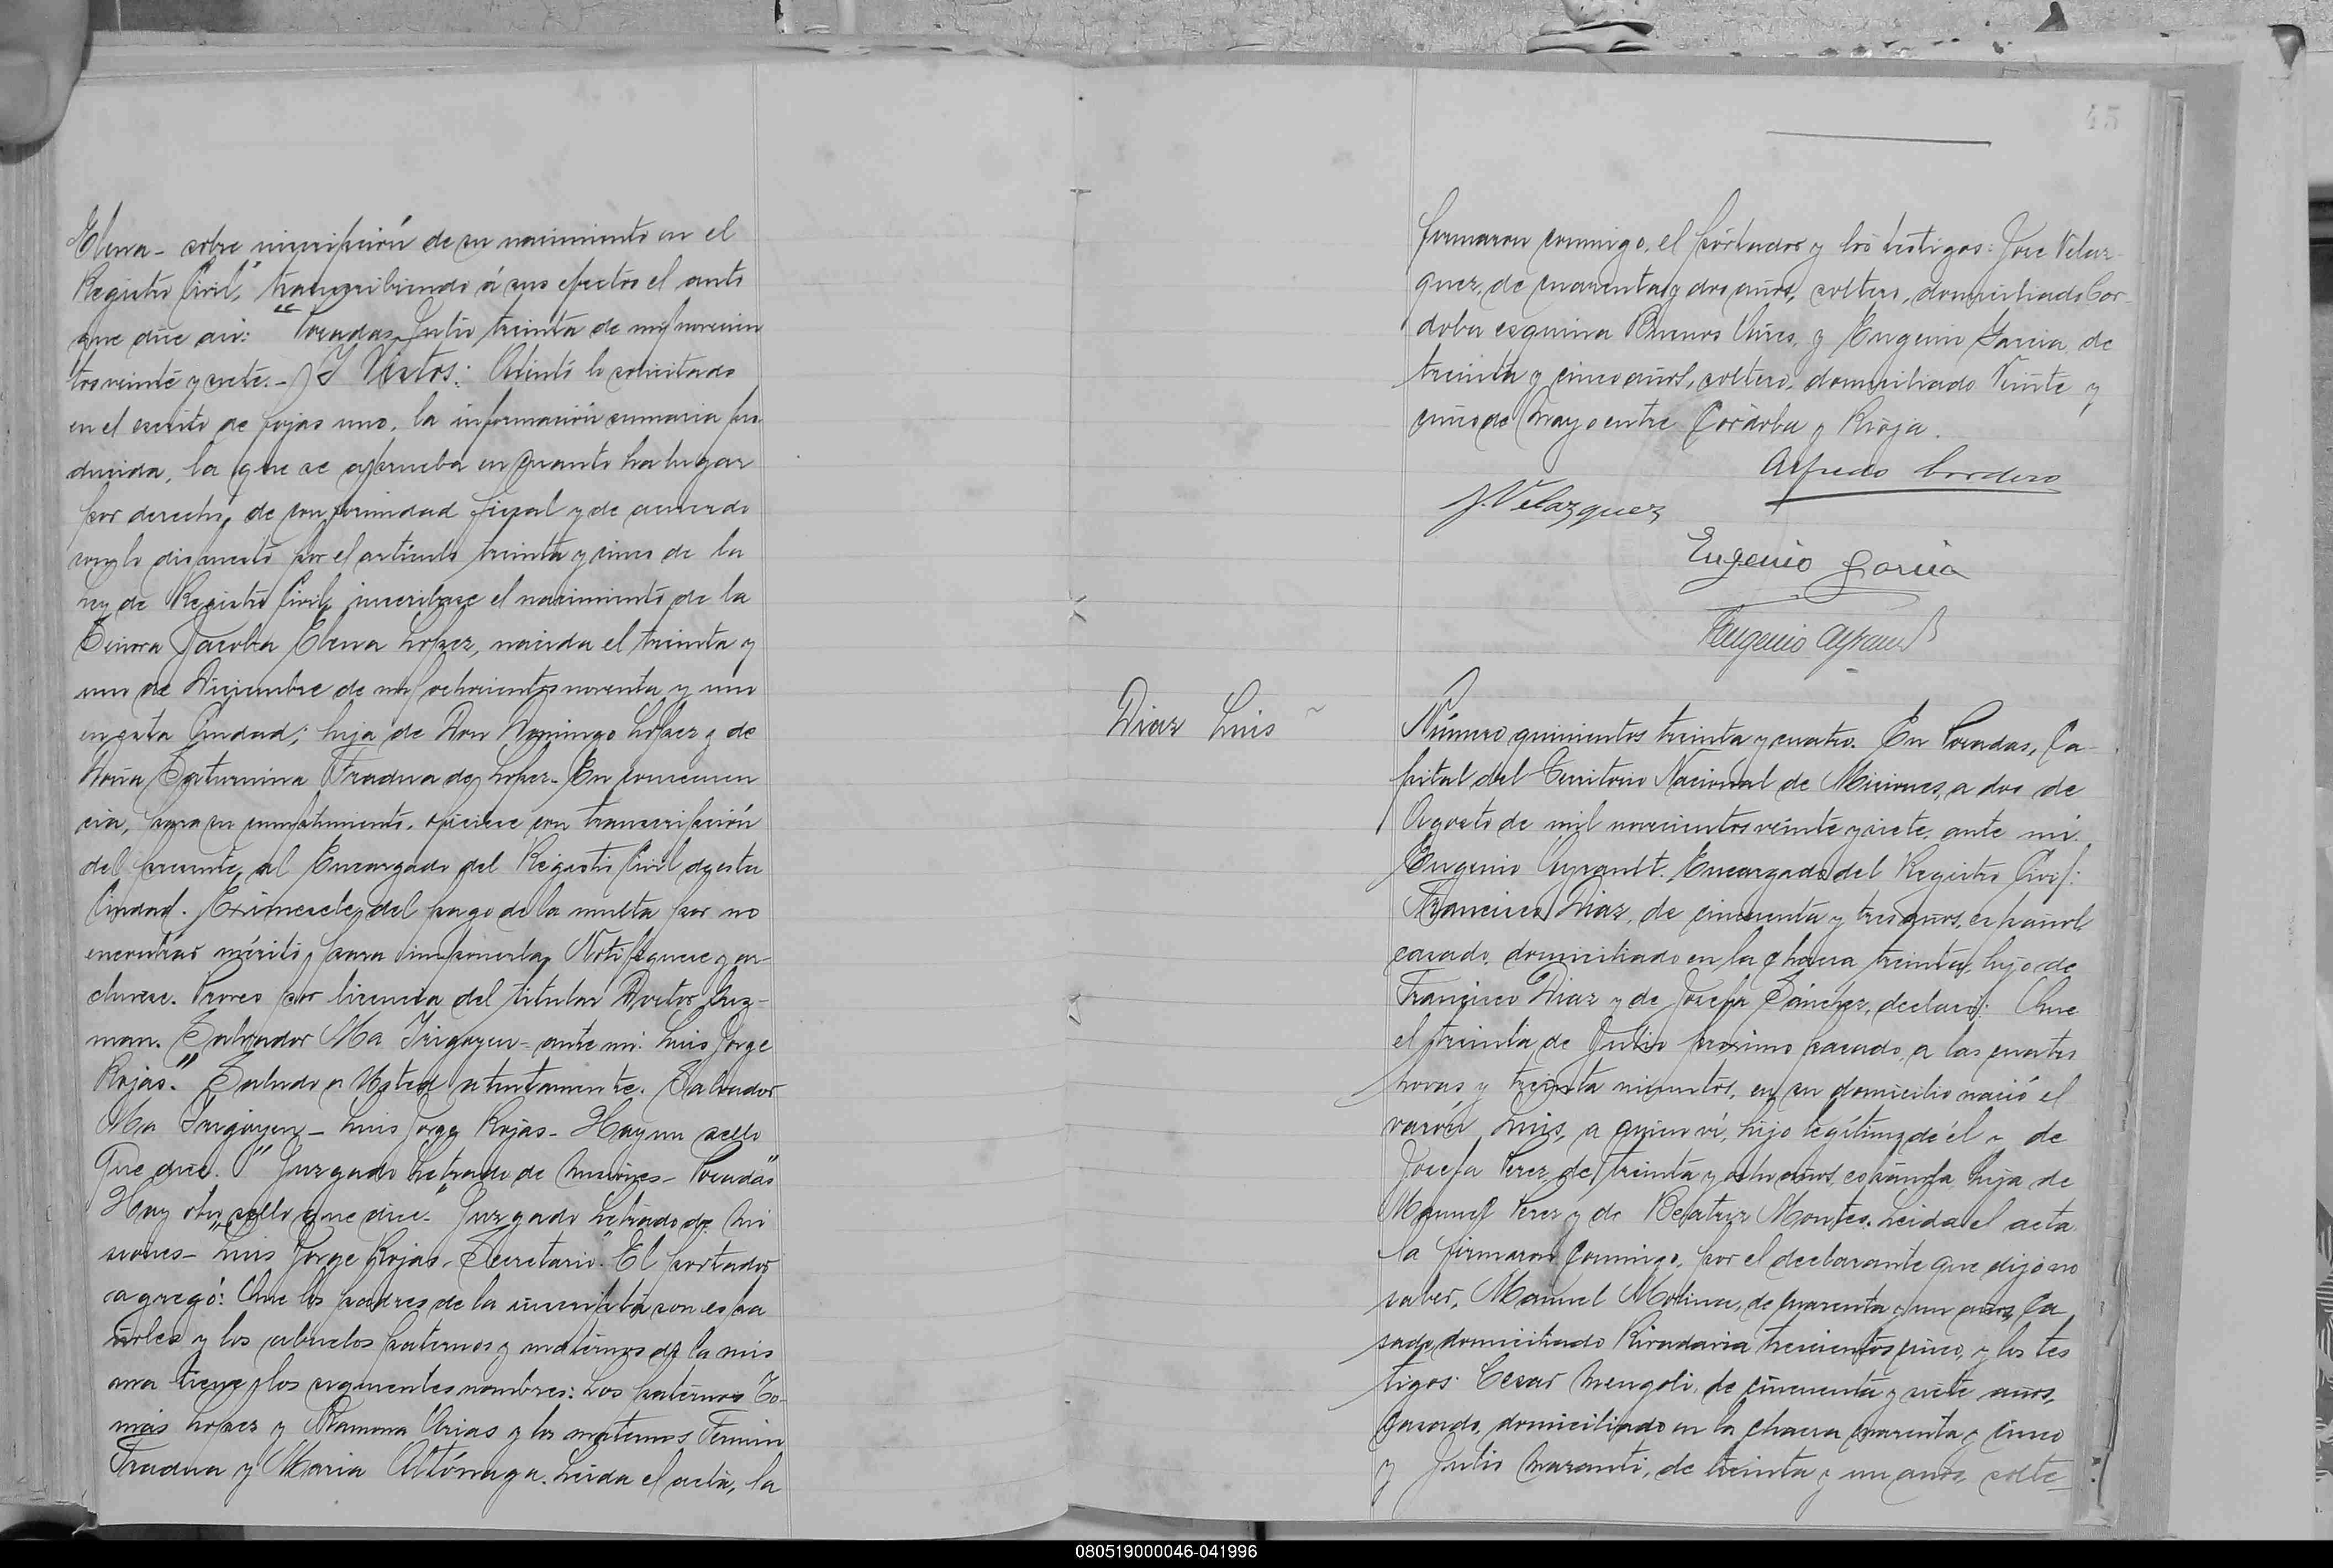 Elena - sobre inscripción de su nacimiento en el
Registro Civil," transcribiendo á sus efectos el auto
que dice así: "Posadas, Julio treinta de mil novecien
tos veinte y siete. - Y Vistos: Atento lo solicitado
en el escrito de fojas uno, la información sumaria pro
ducida, la que se aprueba en cuanto ha lugar
por derecho, de conformidad fiscal y de acuerdo
con lo dispuesto por el artículo treinta y cinco de la
ley de Registro Civil, inscribase el nacimiento de la
Señora Jacoba Elena Lopez, nacida el treinta y
uno de Diciembre de mil ochocientos noventa y uno
en esta Ciudad; hija de Don Domingo Lopez y de
Doña Saturnina Fradua de Lopez. En consecuen
cia, para su cumplimiento, ofíciese con transcripción
del presente, al Encargado del Registro Civil de esta
Ciudad. Exímesele del pago de la multa por no
encontrar mérito, para imponerla. Notifíquese y ar-
chívese. Proveo por licencia del titular Doctor Guz-
man. Salvador Ma Irigoyen - ante mi: Luis Jorge
Rojas." Saludo a Usted atentamente. Salvador
Ma Irigoyen - Luis Jorge Rojas - Hay un sello
que dice: "Juzgado Letrado de Misiones - Posadas"
Hay otro sello que dice - "Juzgado Letrado de Mi
siones - Luis Jorge Rojas. Secretario." El portador
agregó: Que los padres de la inscripta son espa
ñoles y los abuelos paternos y maternos de la mis
ma tiene los siguientes nombres: Los paternos To-
más Lopez y Ramona Arias y los maternos Fermin
Fradua y Maria Altónaga. Leida el acta, la
45
firmaron conmigo, el portador y los testigos: Jose Velaz-
quez, de cuarenta y dos años, soltero, domiciliado Cor-
doba esquina Buenos Aires, y Eugenio Garcia, de
treinta y cinco años, soltero, domiciliado Veinte y
cinco de Mayo entre Córdoba y Rioja.
Alfredo Cordero
J. Velazquez
Eugenio Garcia
Eugenio Ayrault
Diaz Luis
Número quinientos treinta y cuatro. En Posadas, Ca-
pital del Territorio Nacional de Misiones, a dos de
Agosto de mil novecientos veinte y siete, ante mí.
Eugenio Ayrault. Encargado del Registro Civil:
Francisco Diaz, de cincuenta y tres años, español
casado, domiciliado en la chacra treinta, hijo de
Francisco Diaz y de Josefa Sánchez, declaró: Que
el treinta de Julio proximo pasado, a las cuatro
horas y treinta minutos, en su domicilio nació el
varón Luis, a quien ví, hijo legítimo de él y de
Josefa Perez, de treinta y ocho años, española, hija de
Manuel Perez y de Beatriz Montes. Leida el acta
la firmaron conmigo, por el declarante que dijo no
saber, Manuel Molina, de cuarenta y un años, ca
sado, domiciliado Rivadavia trescientos cinco, y los tes
tigos: Cesar Mengoli, de cincuenta y siete años,
casado, domiciliado en la chacra cuarenta y cinco
y Julio Maranti, de treinta y un años, solte-
080519000046-041996